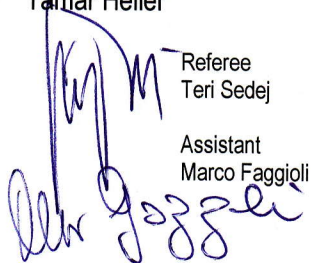 Tamar Heller
Referee
Teri Sedej
Assistant
Marco Faggioli